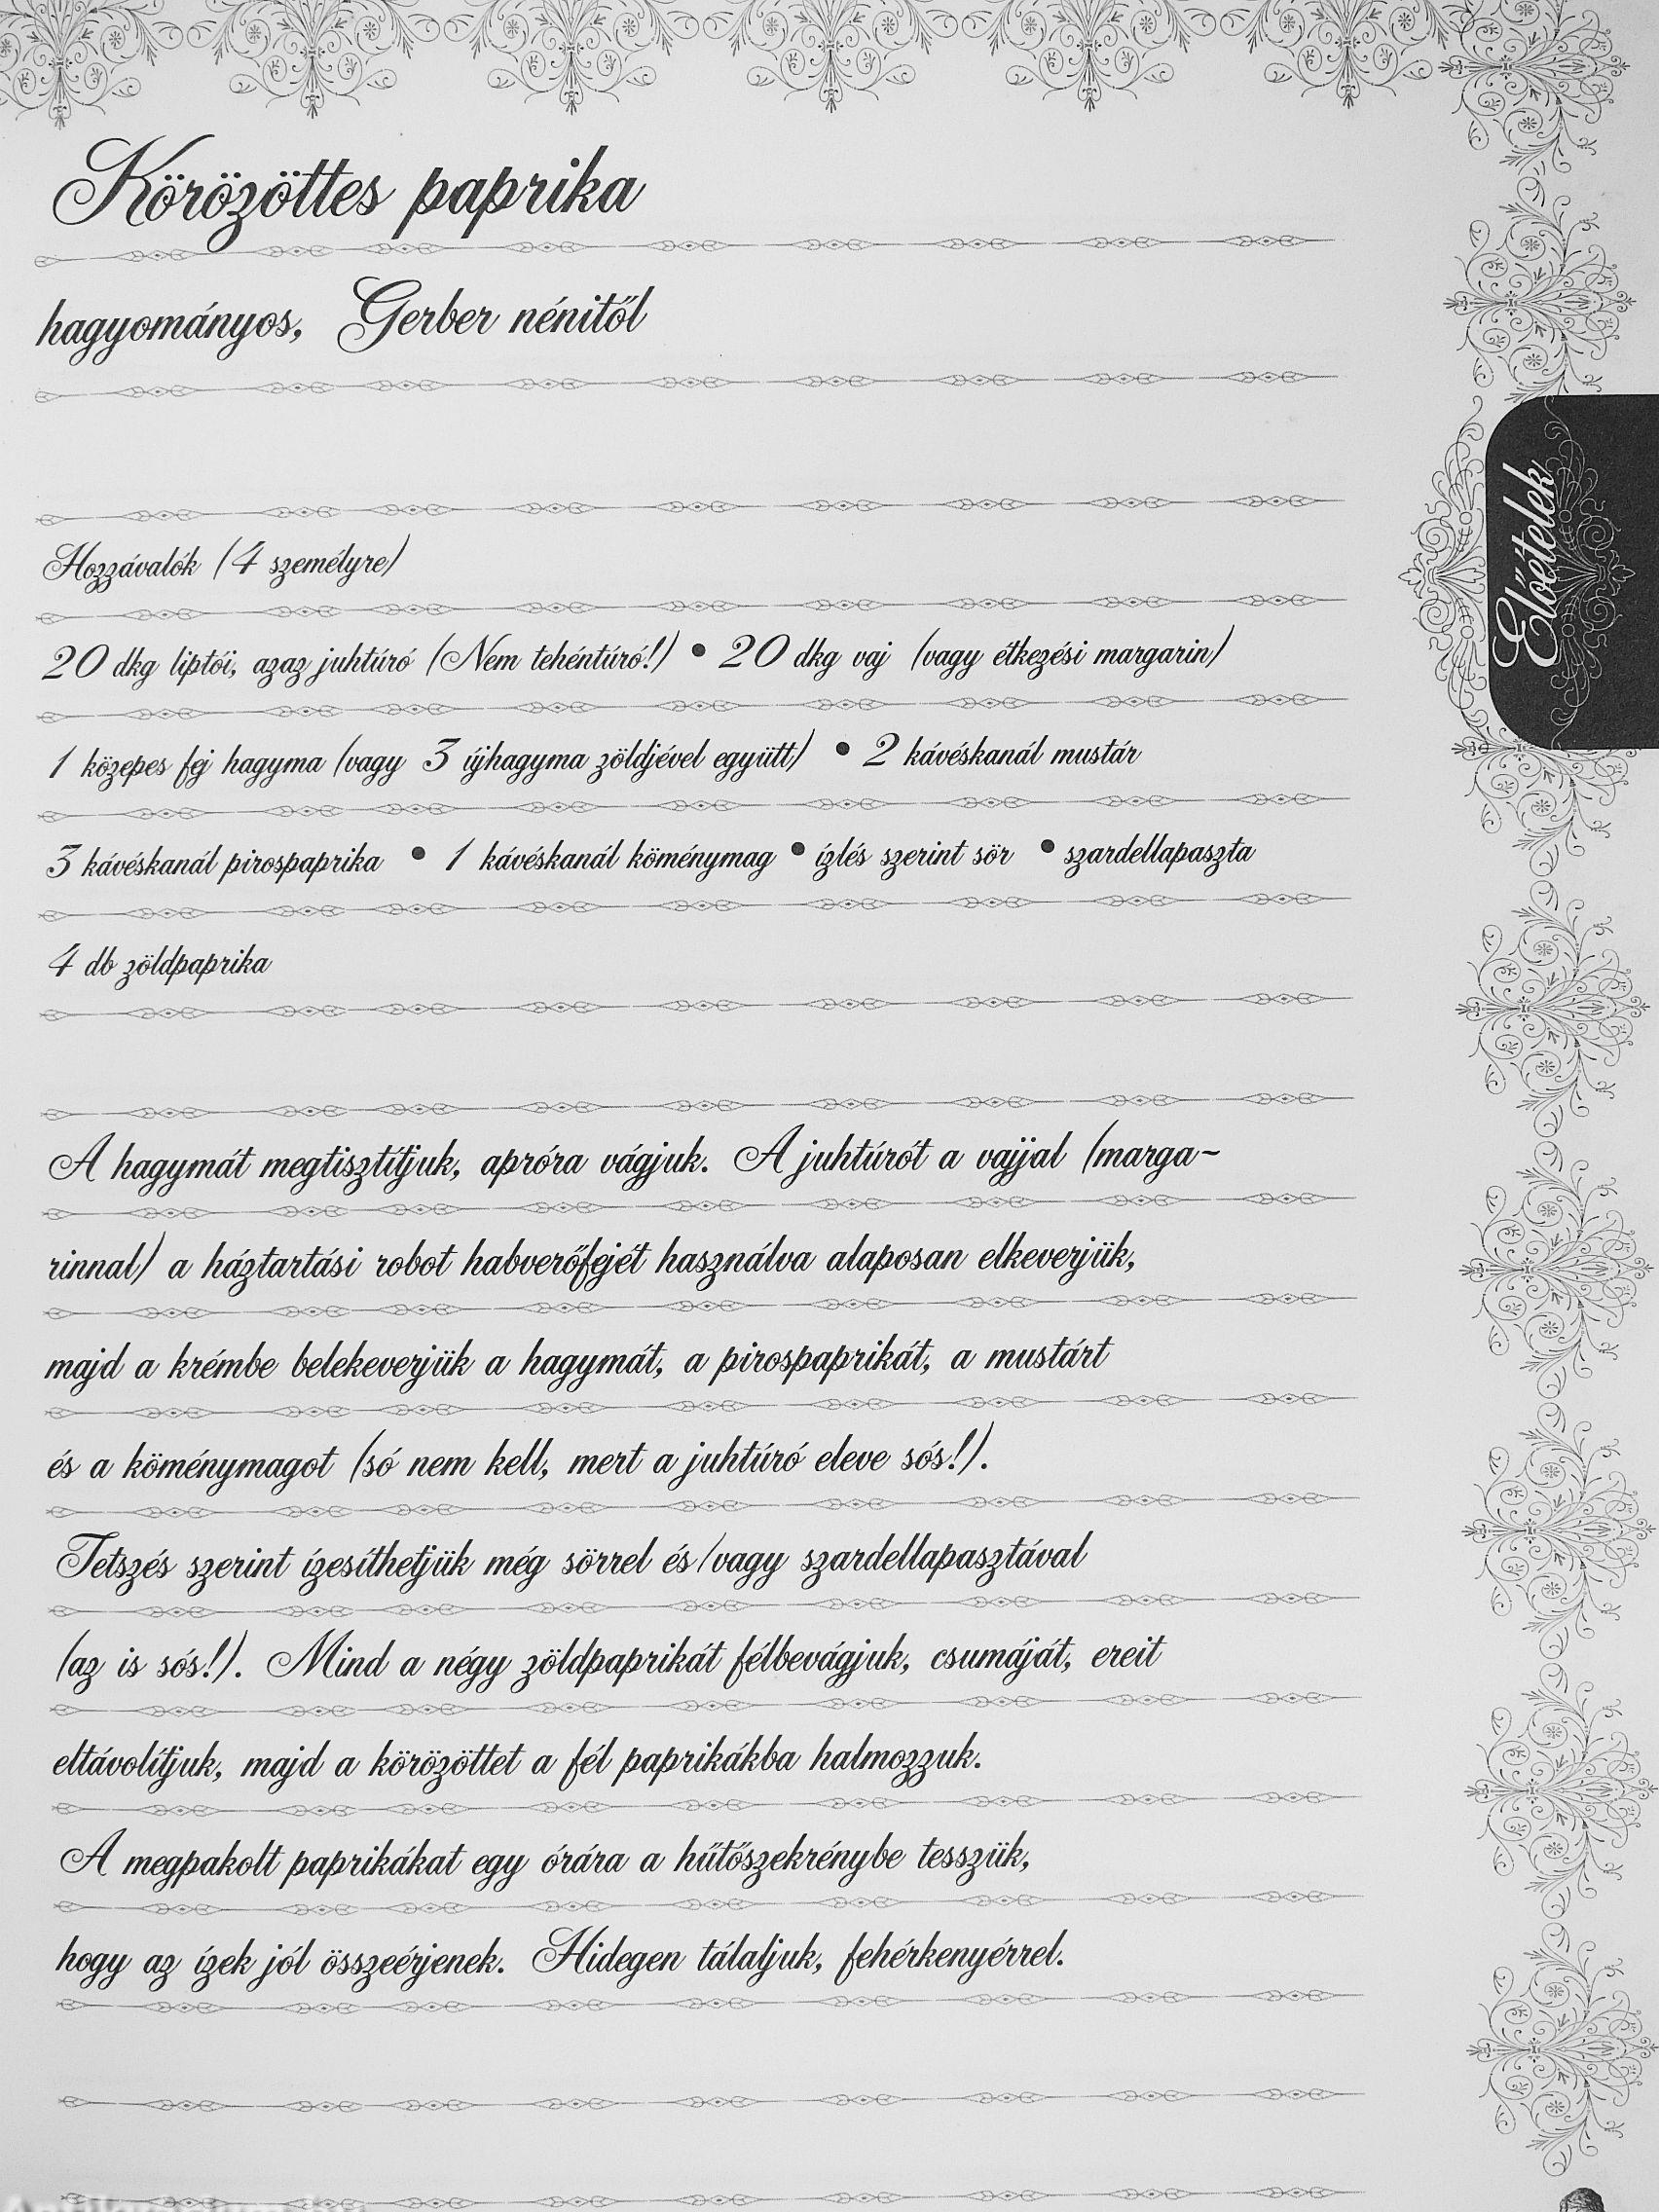 Körözöttes paprika
hagyományos, Gerber nénitől
Előételek
Hozzávalók (4 személyre)
20 dkg liptói, azaz juhtúró (Nem tehéntúró!) • 20 dkg vaj (vagy étkezési margarin)
1 közepes fej hagyma (vagy 3 újhagyma zöldjével együtt) • 2 kávéskanál mustár
3 kávéskanál pirospaprika • 1 kávéskanál köménymag • ízlés szerint sör • szardellapaszta
4 db zöldpaprika
A hagymát megtisztítjuk, apróra vágjuk. A juhtúrót a vajjal (marga-
rinnal) a háztartási robot habverőfejét használva alaposan elkeverjük,
majd a krémbe belekeverjük a hagymát, a pirospaprikát, a mustárt
és a köménymagot (só nem kell, mert a juhtúró eleve sós!).
Tetszés szerint ízesíthetjük még sörrel és/vagy szardellapasztával
(az is sós!). Mind a négy zöldpaprikát félbevágjuk, csumáját, ereit
eltávolítjuk, majd a körözöttet a fél paprikákba halmozzuk.
A megpakolt paprikákat egy órára a hűtőszekrénybe tesszük,
hogy az ízek jól összeérjenek. Hidegen tálaljuk, fehérkenyérrel.